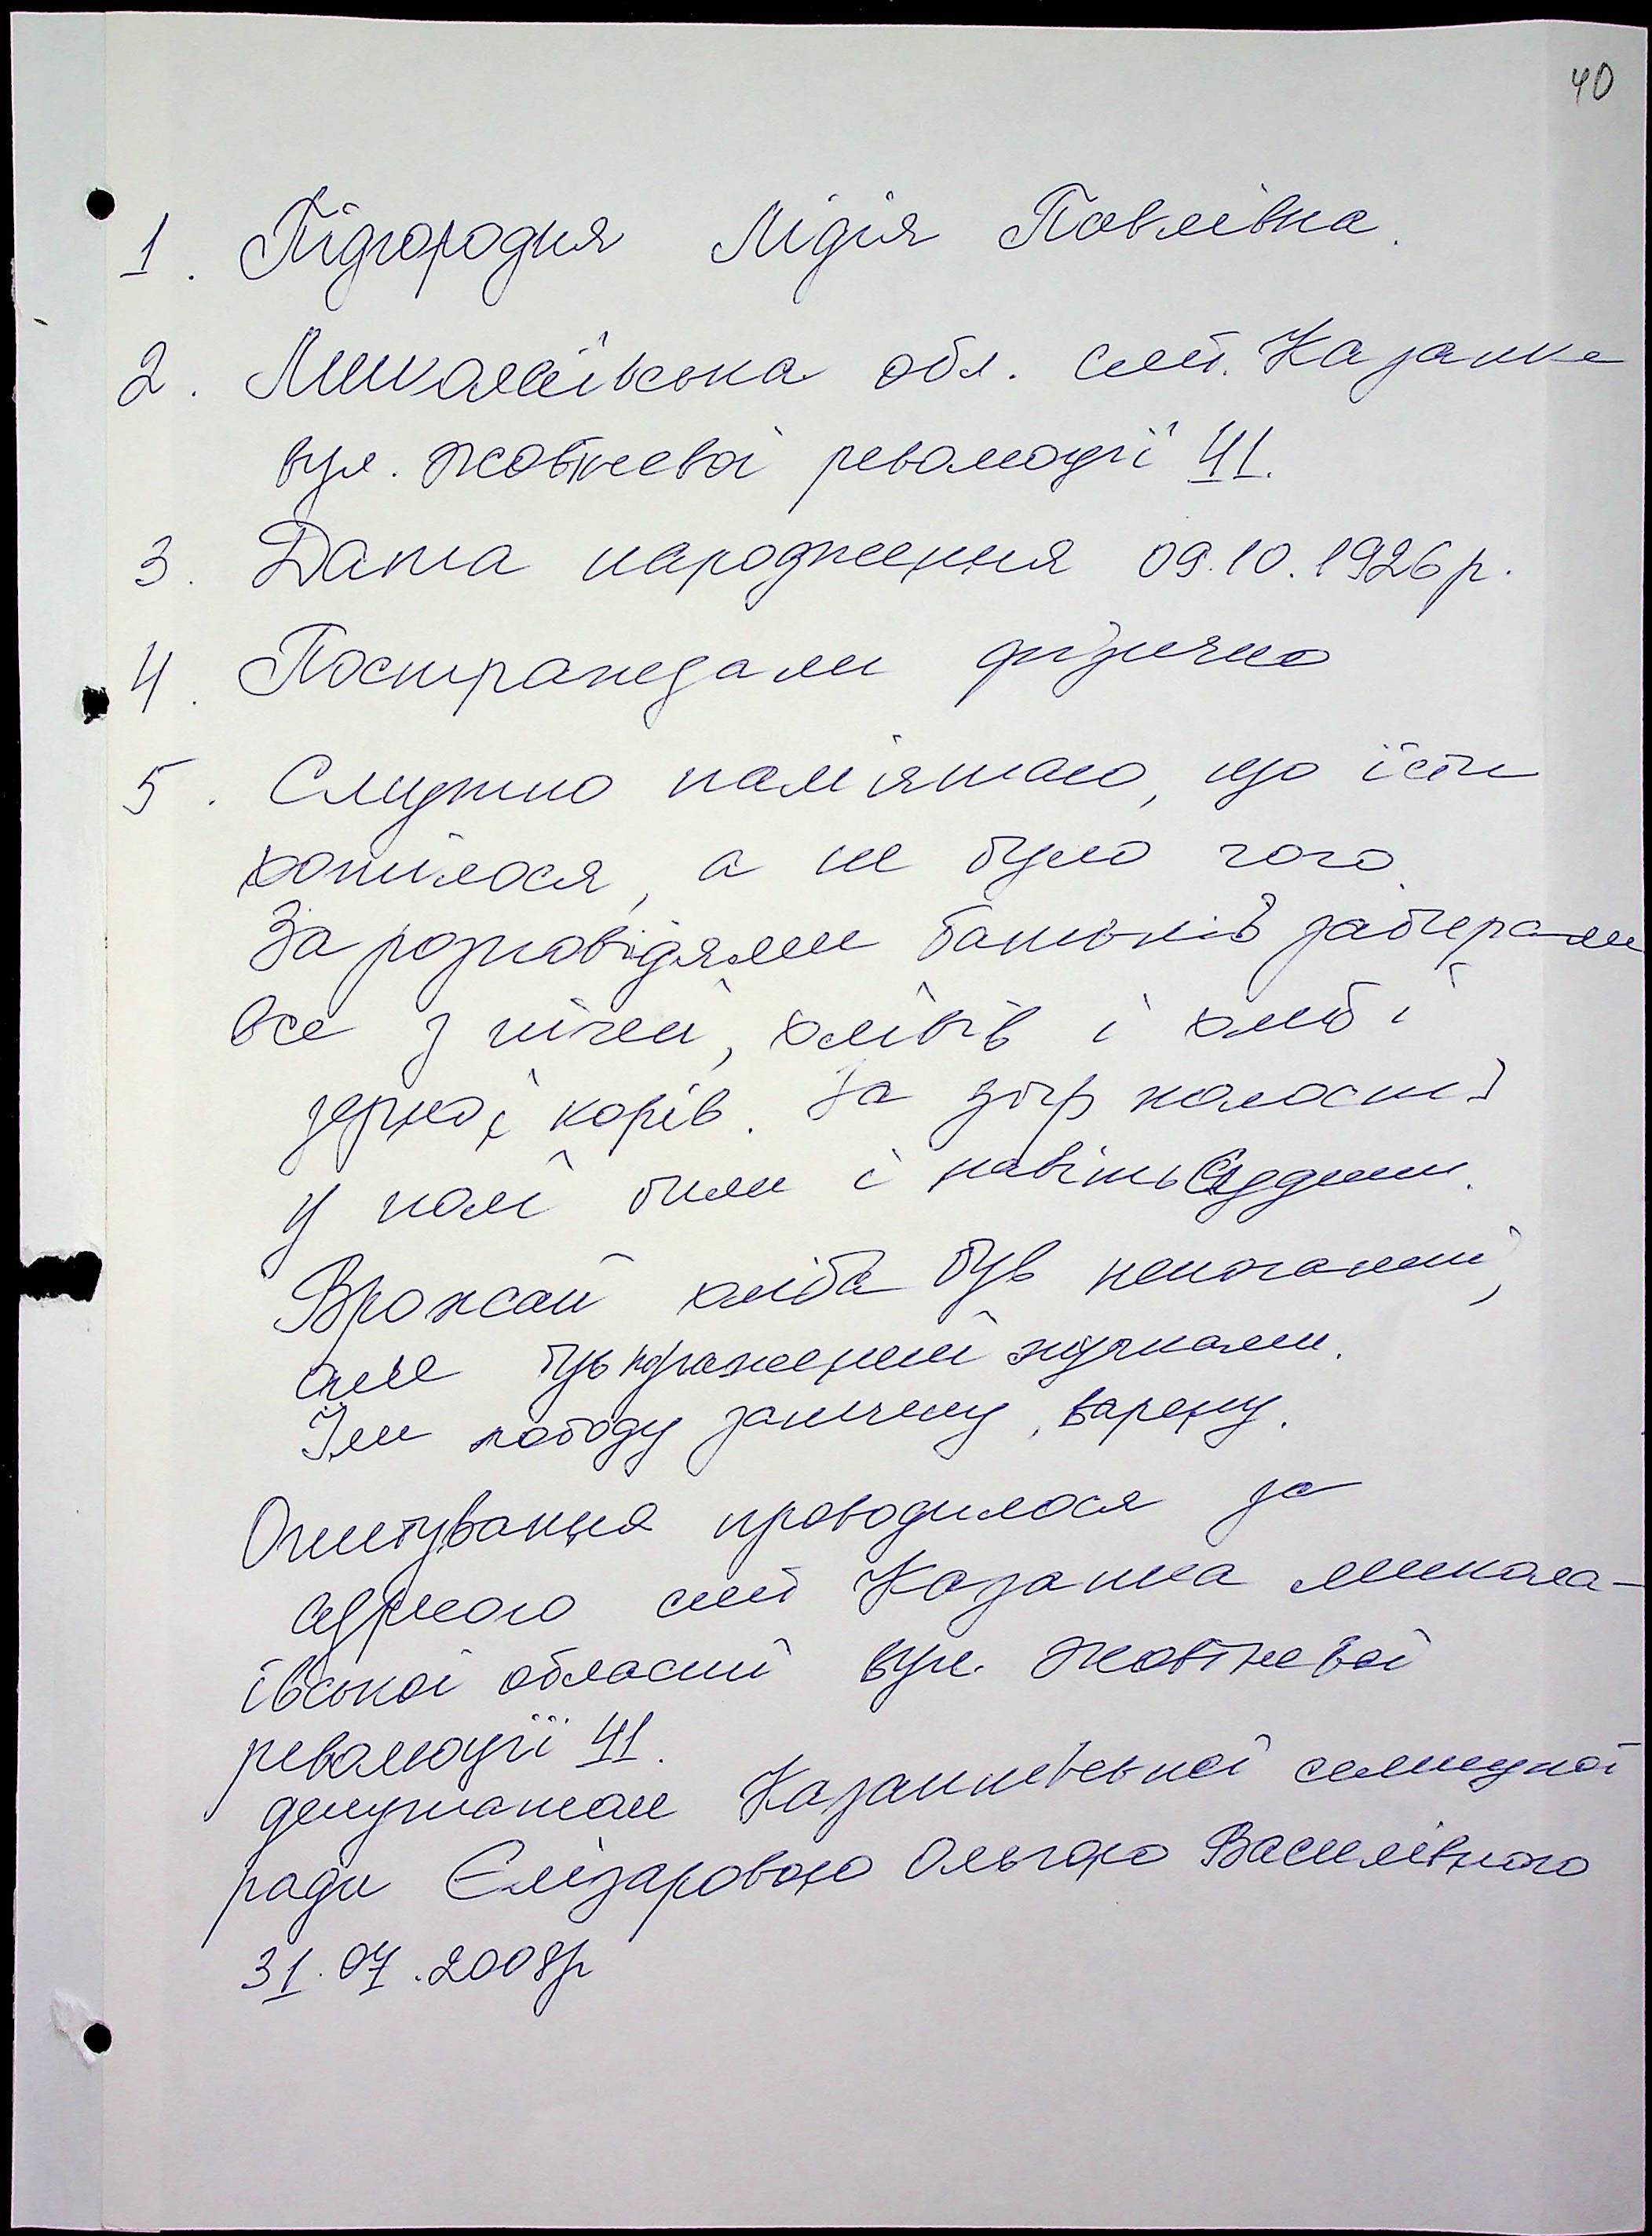 40
1. Підгородня Лідія Павлівна.
2. Миколаївська обл. смт. Казанка
вул. Жовтневої революції 41.
3. Дата народження 09.10.1926р.
4. Постраждали фізично
5. Смутно пам'ятаю, що їсти
хотілося, а не було чого.
За розповідями батьків забирали
все з печей, хлівів і хліб і
зерно і корів. За збір колосків
у полі били і навіть судили.
Врожай хліба був непоганий,
але був уражений жучками.
Їли лободу запечену, варену.
Опитування проводилося за
адресою смт Казанка микола-
ївської області вул. Жовтневої
революції 41.
депутатом Казанківської селищної
ради Єлізаровою Ольгою Василівною
31.07.2008р